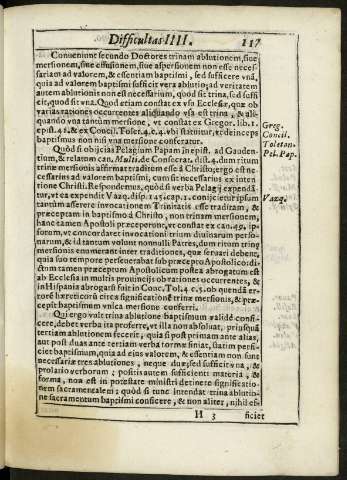 Difficultas IIII. 117
Conueniunt secundo Doctores trinam ablutionem, siue
mersionem, siue effusionem, siue aspersionem non esse neces-
sariam ad valorem, & essentiam baptismi, sed sufficere vnã,
quia ad valorem baptismi sufficit vera ablutio; ad veritatem
autem ablutionis non est necessarium, quòd sit trina, sed suffi
cit, quod sit vna. Quod etiam constat ex vsu Ecclesiæ, quæ ob
varias rationes occurrentes aliquando vsa est trina, & ali-
quando vna tantum mersione, vt constat ex Gregor. lib. 1.
epist. 41. & ex Concil. Tolet. 4. c. 4. vbi statuitur, vt deinceps
baptismus non nisi vna mersione conferatur.
Greg.
Concil.
Toletan.
Pel. Pap.
Quòd si obijcias Pelagium Papam in epist. ad Gauden-
tium, & relatum can. Multi. de Consecrat. dist. 4. dum ritum
trinæ mersionis affirmat traditum esse à Christo; ergo est ne-
cessarius ad valorem baptismi, cum sit necessarius ex inten-
tione Christi. Respondemus, quòd si verba Pelagij expendã-
tur, vt ea expendit Vazq. disp. 145. cap. 1. conijcietur ipsum
Vazq.
tantùm asserere inuocationem Trinitatis esse traditam, &
præceptam in baptismo à Christo, non trinam mersionem,
hanc tamen Apostoli præceperunt, vt constat ex can. 49. ip-
sorum, vt concordaret inuocationi trium diuinarum perso-
narum, & id tantum volunt nonnulli Patres, dum ritum trinę
mersionis enumerant inter traditiones, quę seruari debent,
quia suo tempore perseuerabat sub præcepto Apostolico: di-
ctum tamen præceptum Apostolicum postea abrogatum est
ab Ecclesia in multis prouincijs ob rationes occurrentes, &
in Hispania abrogarũ fuit in Conc. Tol. 4. c. 5. ob quendã er-
rorẽ hæreticorũ circa significationẽ trinæ mersionis, & præ-
cepit baptismum vnica mersione conferri.
Qui ergo vult trina ablutione baptismum validè confi-
cere, debet verba ita proferre, vt illa non absoluat, priusquã
tertiam ablutionem fecerit, quia si post primam ante alias,
aut post duas ante tertiam verba formæ finiat, statim perfi-
ciet baptismum, quia ad eius valorem, & essentiam non sunt
necessariæ tres ablutiones, neque duæ, sed sufficit vna, &
prolatio verborum; positis autem sufficienti materia, &
forma, non est in potestate ministri detinere significatio-
nem sacramentalem; quòd si tunc intendat trina ablutio-
ne sacramentum baptismi conficere, & non aliter, nihil ef-
H 3 ficiet